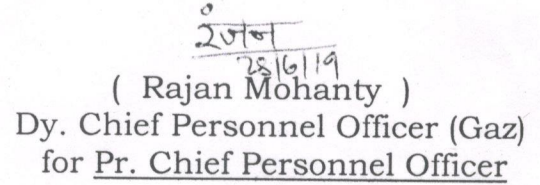 रंजन
28/6/19
( Rajan Mohanty )
Dy. Chief Personnel Officer (Gaz)
for Pr. Chief Personnel Officer